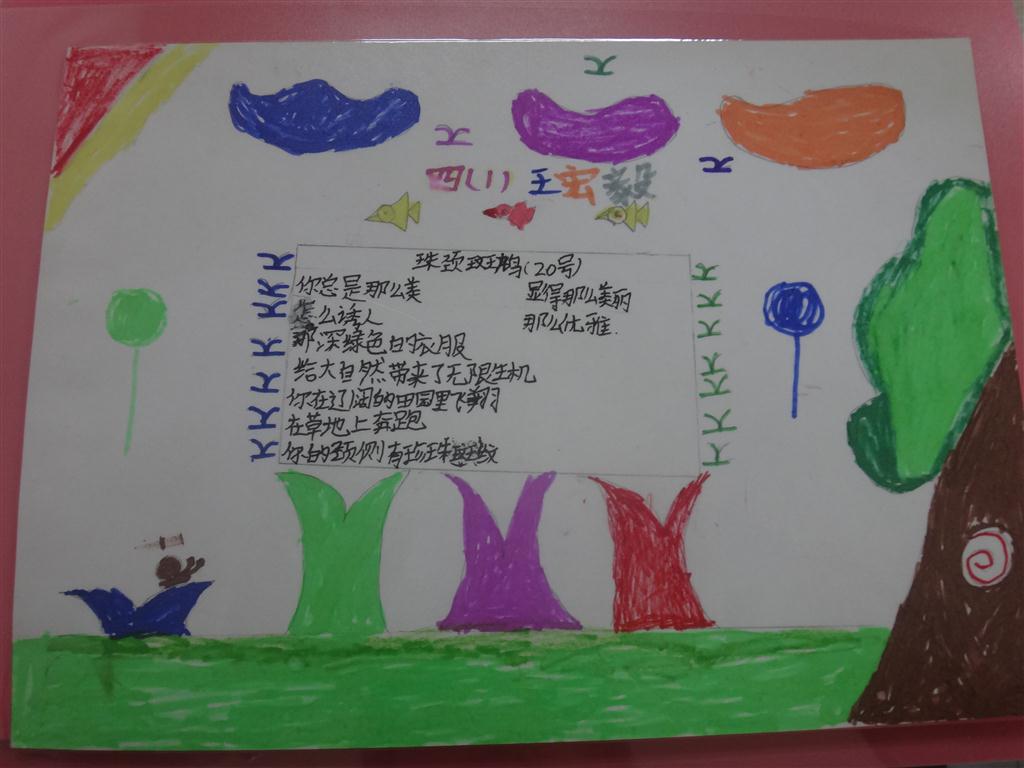 四(1)王宏毅
珠颈斑鸠(20号)
你总是那么美
怎么诱人
那深绿色的衣服
给大自然带来了无限生机
你在辽阔的田园里飞翔
在草地上奔跑
你的颈侧有珍珠斑纹
显得那么美丽
那么优雅.